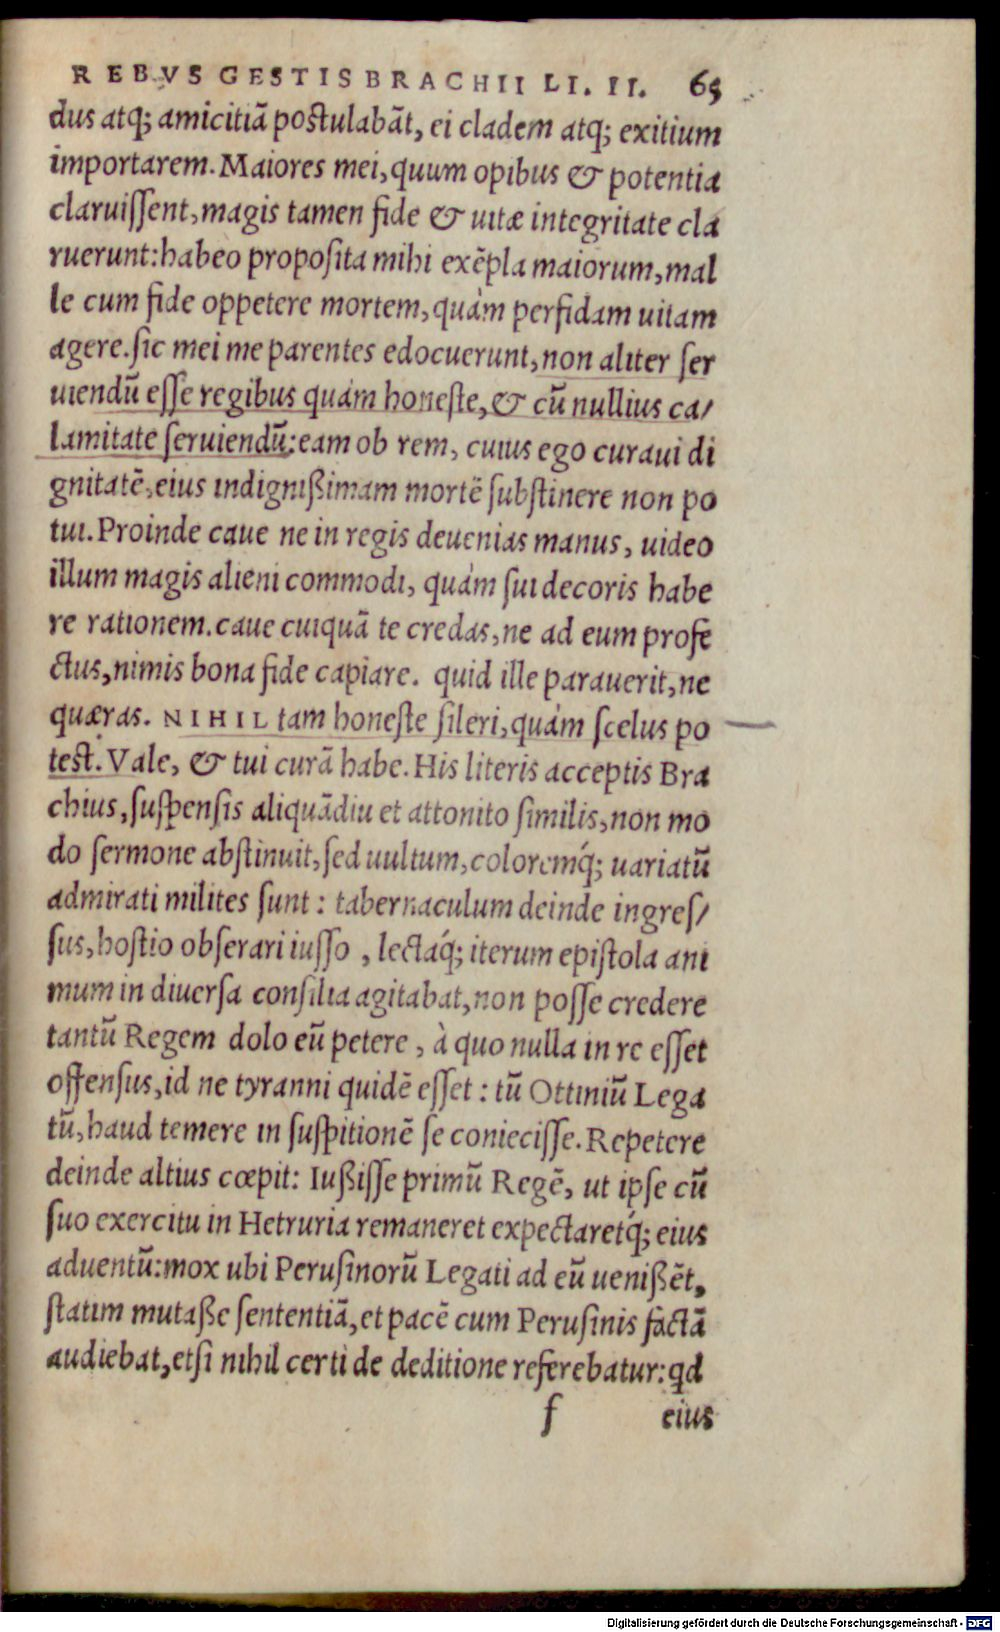 REBVS GESTIS BRACHII LI. II. 65
dus atq; amicitiā postulabāt, ei cladem atq; exitium
importarem. Maiores mei, quum opibus & potentia
claruiſſent, magis tamen fide & uitæ integritate cla
ruerunt: habeo propoſita mihi exēpla maiorum, mal
le cum fide oppetere mortem, quàm perfidam uitam
agere. ſic mei me parentes edocuerunt, non aliter ſer
uiendū eſſe regibus quàm honeſte, & cū nullius ca/
lamitate ſeruiendū: eam ob rem, cuius ego curaui di
gnitatē, eius indignißimam mortē ſubſtinere non po
tui. Proinde caue ne in regis deuenias manus, uideo
illum magis alieni commodi, quàm ſui decoris habe
re rationem. caue cuiquā te credas, ne ad eum profe
ctus, nimis bona fide capiare. quid ille parauerit, ne
quæras. NIHIL tam honeſte ſileri, quàm ſcelus po
test. Vale, & tui curā habe. His literis acceptis Bra
chius, ſuſpenſis aliquādiu et attonito ſimilis, non mo
do ſermone abſtinuit, ſed uultum, coloremq́; uariatū
admirati milites ſunt: tabernaculum deinde ingreſ/
ſus, hoſtio obſerari iuſſo, lectaq́; iterum epiſtola ani
mum in diuerſa conſilia agitabat, non poſſe credere
tantū Regem dolo eū petere, à quo nulla in re eſſet
offenſus, id ne tyranni quidē eſſet: tū Ottiniū Lega
tū, haud temere in ſuſpitionē ſe conieciſſe. Repetere
deinde altius cœpit: Iußiſſe primū Regē, ut ipſe cū
ſuo exercitu in Hetruria remaneret expectaretq́; eius
aduentū: mox ubi Peruſinorū Legati ad eū uenißēt,
ſtatim mutaße ſententiā, et pacē cum Peruſinis factā
audiebat, etſi nihil certi de deditione referebatur: qd
f eius
Digitalisierung gefördert durch die Deutsche Forschungsgemeinschaft - DFG